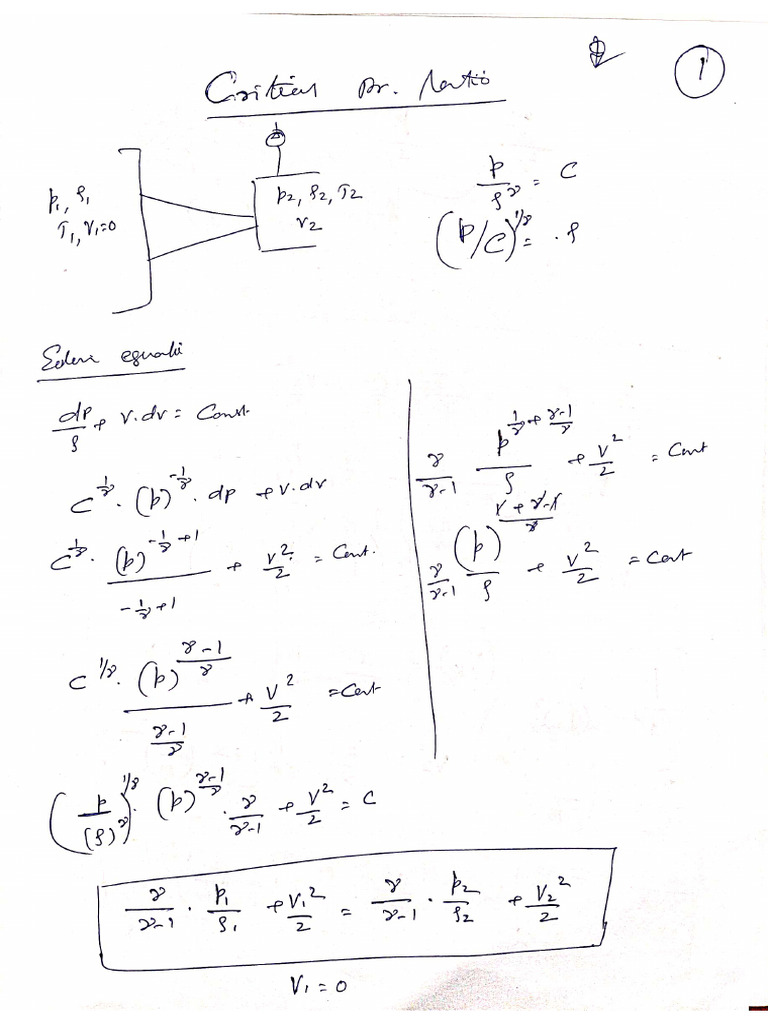 1
Critical pr. ratio
p₁, ρ₁
T₁, v₁=0
p₂, ρ₂, T₂
v₂
p/ρ^γ = C
(p/C)^(1/γ) = ρ
Euler equati
dp/ρ + v.dv = Const.
C^(1/γ) · (p)^(-1/γ) · dp + v.dv
C^(1/γ) · (p)^(-1/γ+1) / (-1/γ+1) + v²/2 = Cont.
C^(1/γ) · (p)^((γ-1)/γ) / ((γ-1)/γ) + v²/2 = Cont
(p/(ρ)^γ)^(1/γ) · (p)^((γ-1)/γ) · γ/(γ-1) + v²/2 = C
γ/(γ-1) p^(1/γ + (γ-1)/γ)/ρ + v²/2 = Cont
γ/(γ-1) (p)^((1+γ-1)/γ)/ρ + v²/2 = Cont
γ/(γ-1) · p₁/ρ₁ + v₁²/2 = γ/(γ-1) · p₂/ρ₂ + v₂²/2
v₁ = 0